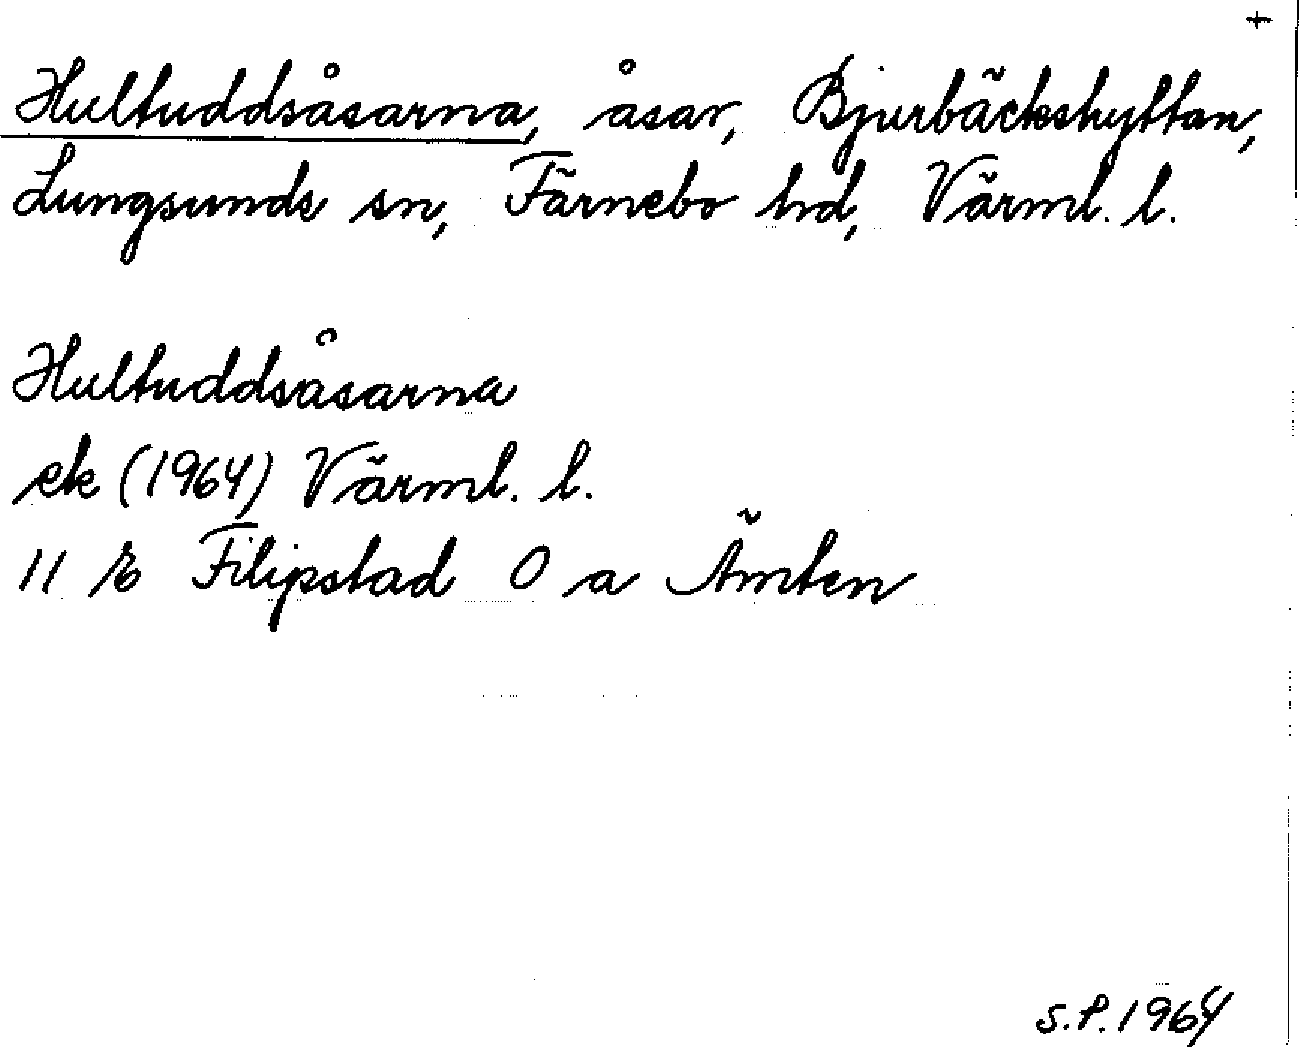 +
Hultuddsåsarna, åsar, Bjurbäckshyttan,
Lungsunds sn, Färnebo hd, Värml. l.
Hultuddsåsarna
ek (1964) Värml. l.
11 E Filipstad O a Ämten
S.P. 1964